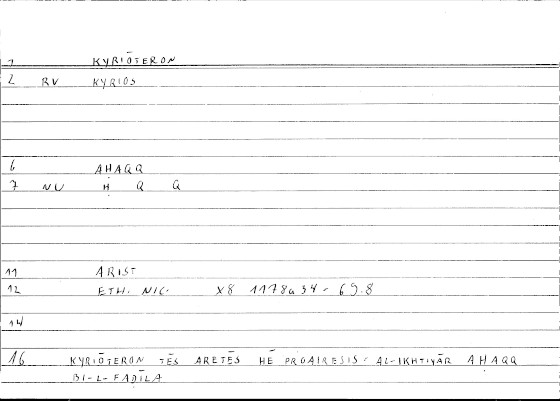 1 KYRIŌTERON
2 RV KYRIOS
6 AḤAQQ
7 NU Ḥ Q Q
11 ARIST
12 ETH. NIC. X8 1178a34 - 69.8
14
16 KYRIŌTERON TĒS ARETĒS HĒ PROAIRESIS - AL-IKHTIYĀR AḤAQQ
BI-L-FAḌĪLA